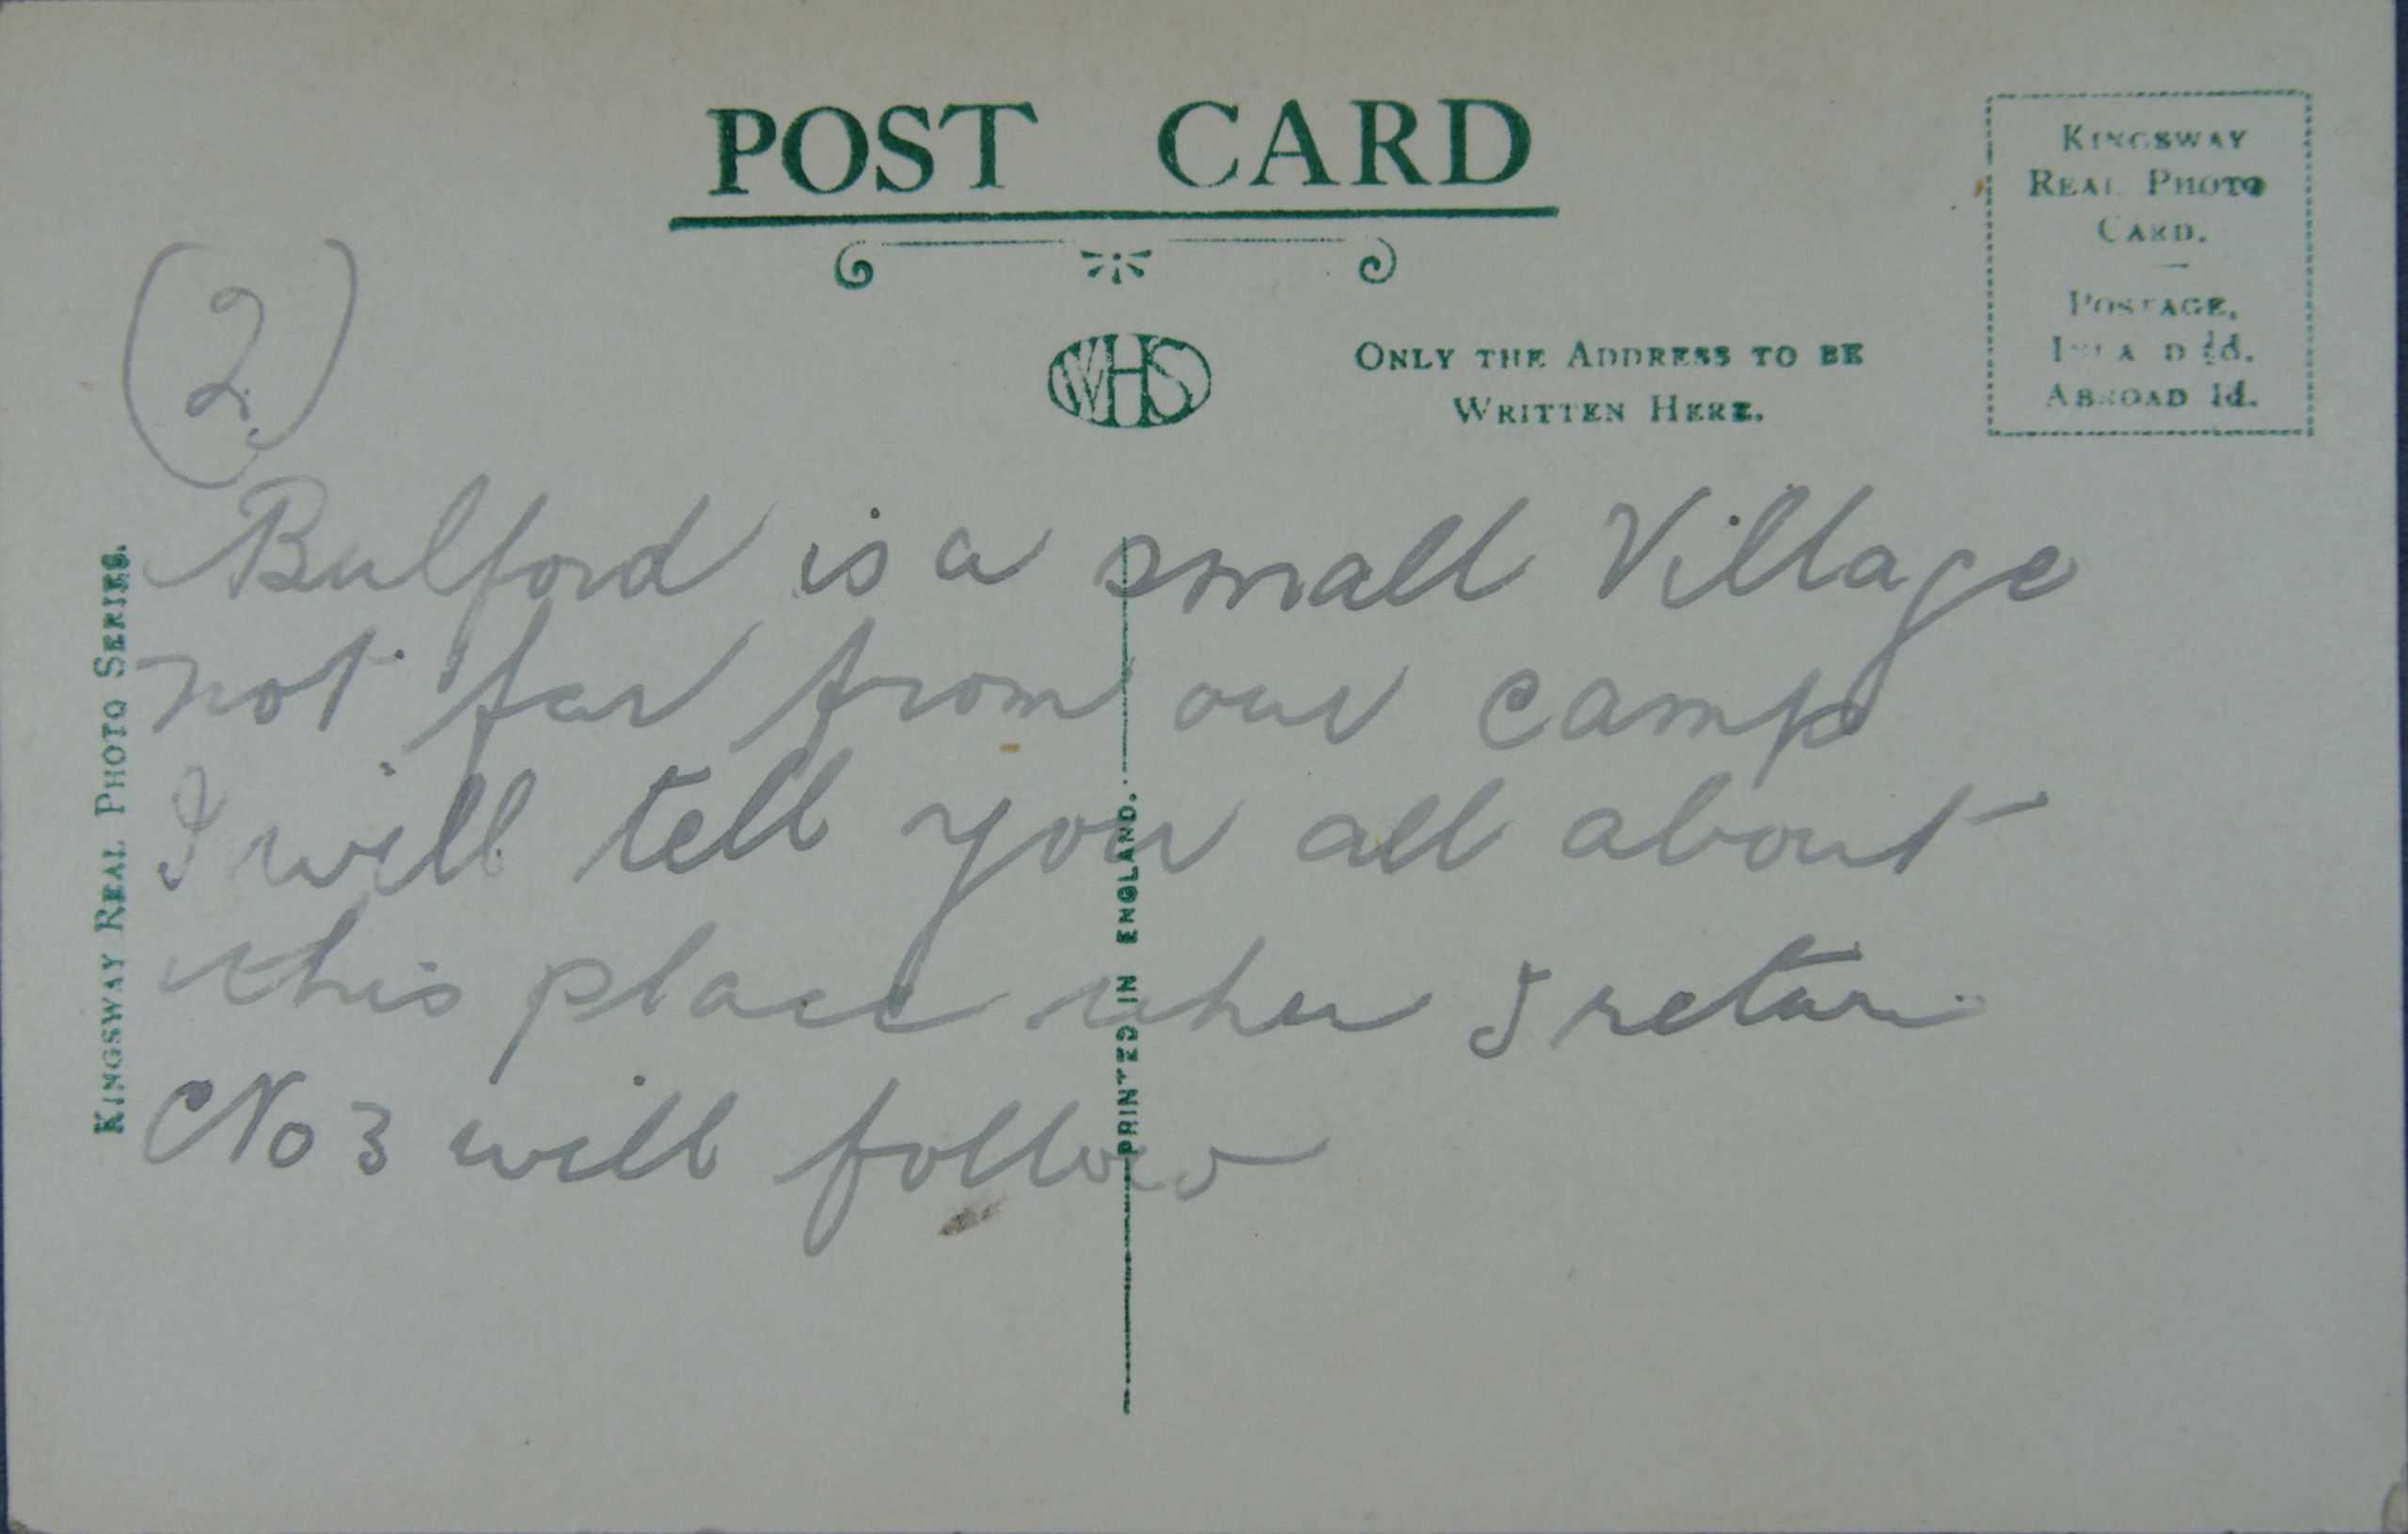 POST CARD
KINGSWAY
REAL PHOTO
CARD.
POSTAGE,
INLAND ½d.
ABROAD 1d.
WHS
ONLY THE ADDRESS TO BE
WRITTEN HERE.
(2)
Bulford is a small Village
not far from our camp
I will tell you all about
this place when I return
No 3 will follow
KINGSWAY REAL PHOTO SERIES.
PRINTED IN ENGLAND.